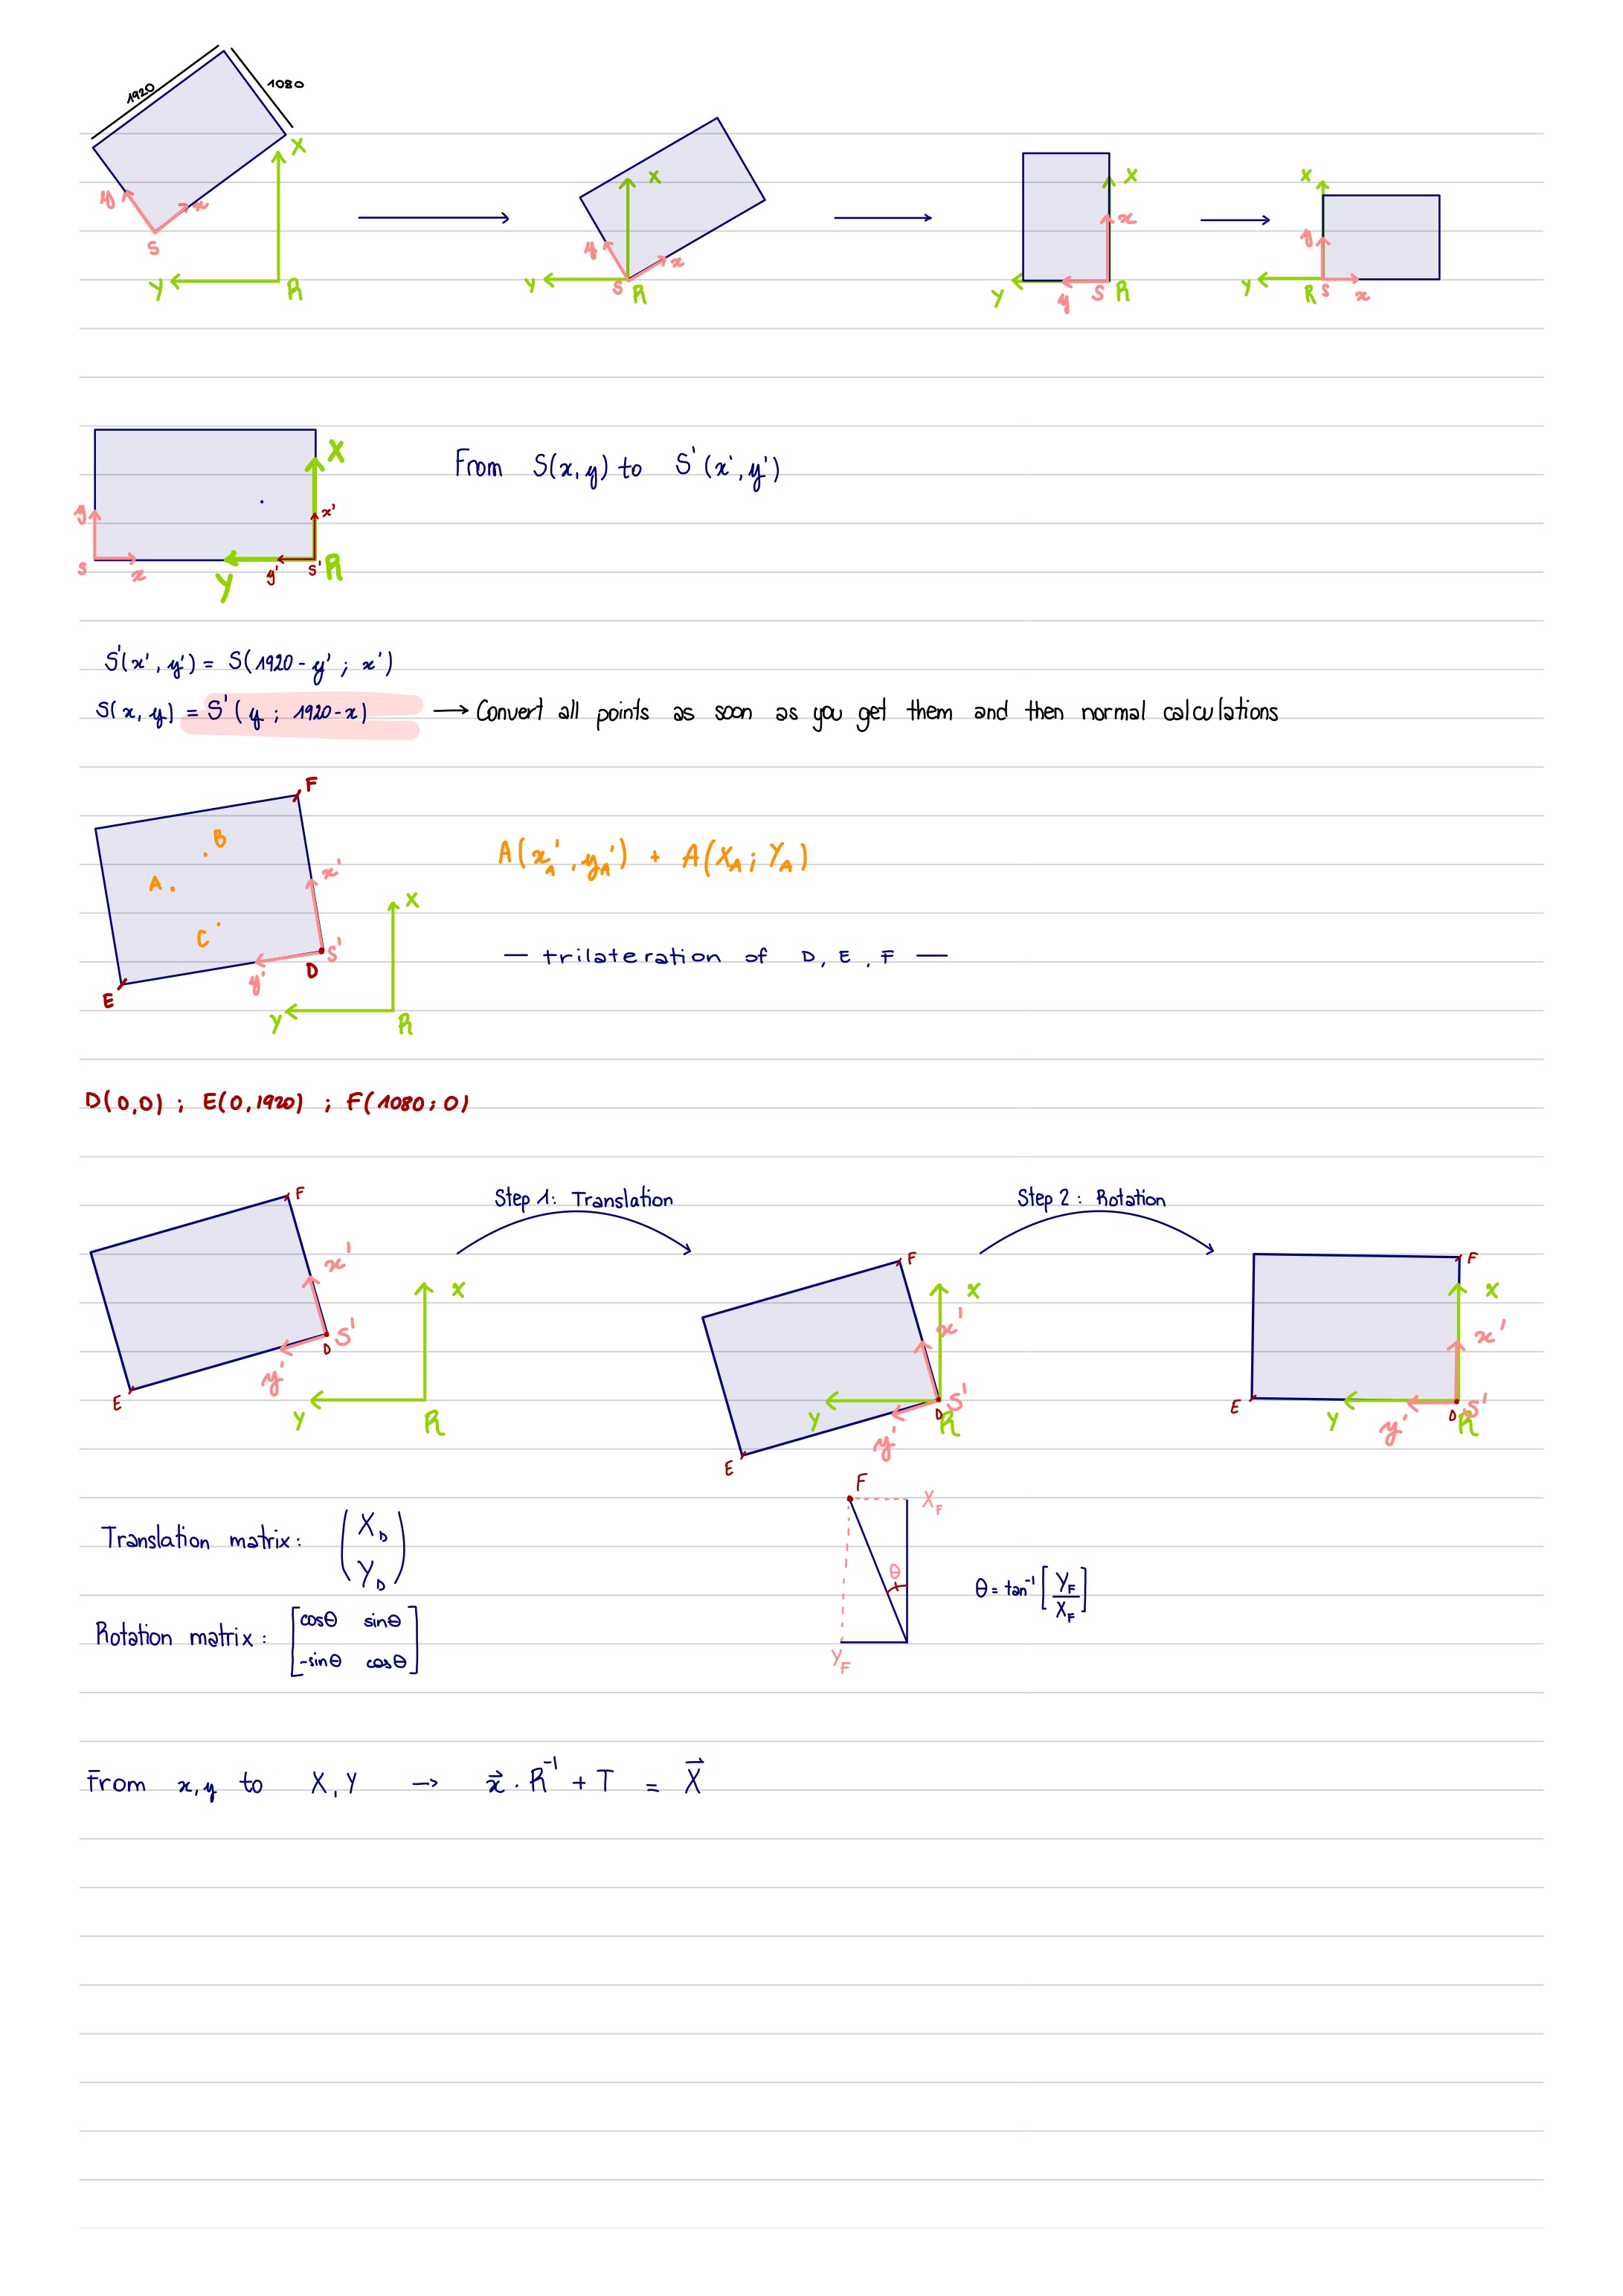 1920
1080
X
y
x
S
Y
R
X
y
x
Y
S
R
X
x
Y
y
S
R
X
y
Y
R
S
x
X
From S(x,y) to S'(x',y')
y
x'
S
x
Y
y'
S'
R
S'(x', y') = S(1920 - y' ; x')
S(x, y) = S'(y ; 1920 - x) → Convert all points as soon as you get them and then normal calculations
F
B
A
x'
C
S'
D
y'
E
X
Y
R
A(x'A , y'A) + A(XA ; YA)
— trilateration of D, E, F —
D(0,0) ; E(0,1920) ; F(1080; 0)
Step 1: Translation
Step 2: Rotation
F
x'
X
S'
D
y'
E
Y
R
F
X
x'
S'
D
Y
R
y'
E
F
X
x'
E
Y
D
S'
R
y'
Translation matrix: (XD YD)
F
XF
θ
YF
θ = tan⁻¹ [YF / XF]
Rotation matrix: [cosθ sinθ
-sinθ cosθ]
From x,y to X,Y → x⃗ . R⁻¹ + T = X⃗